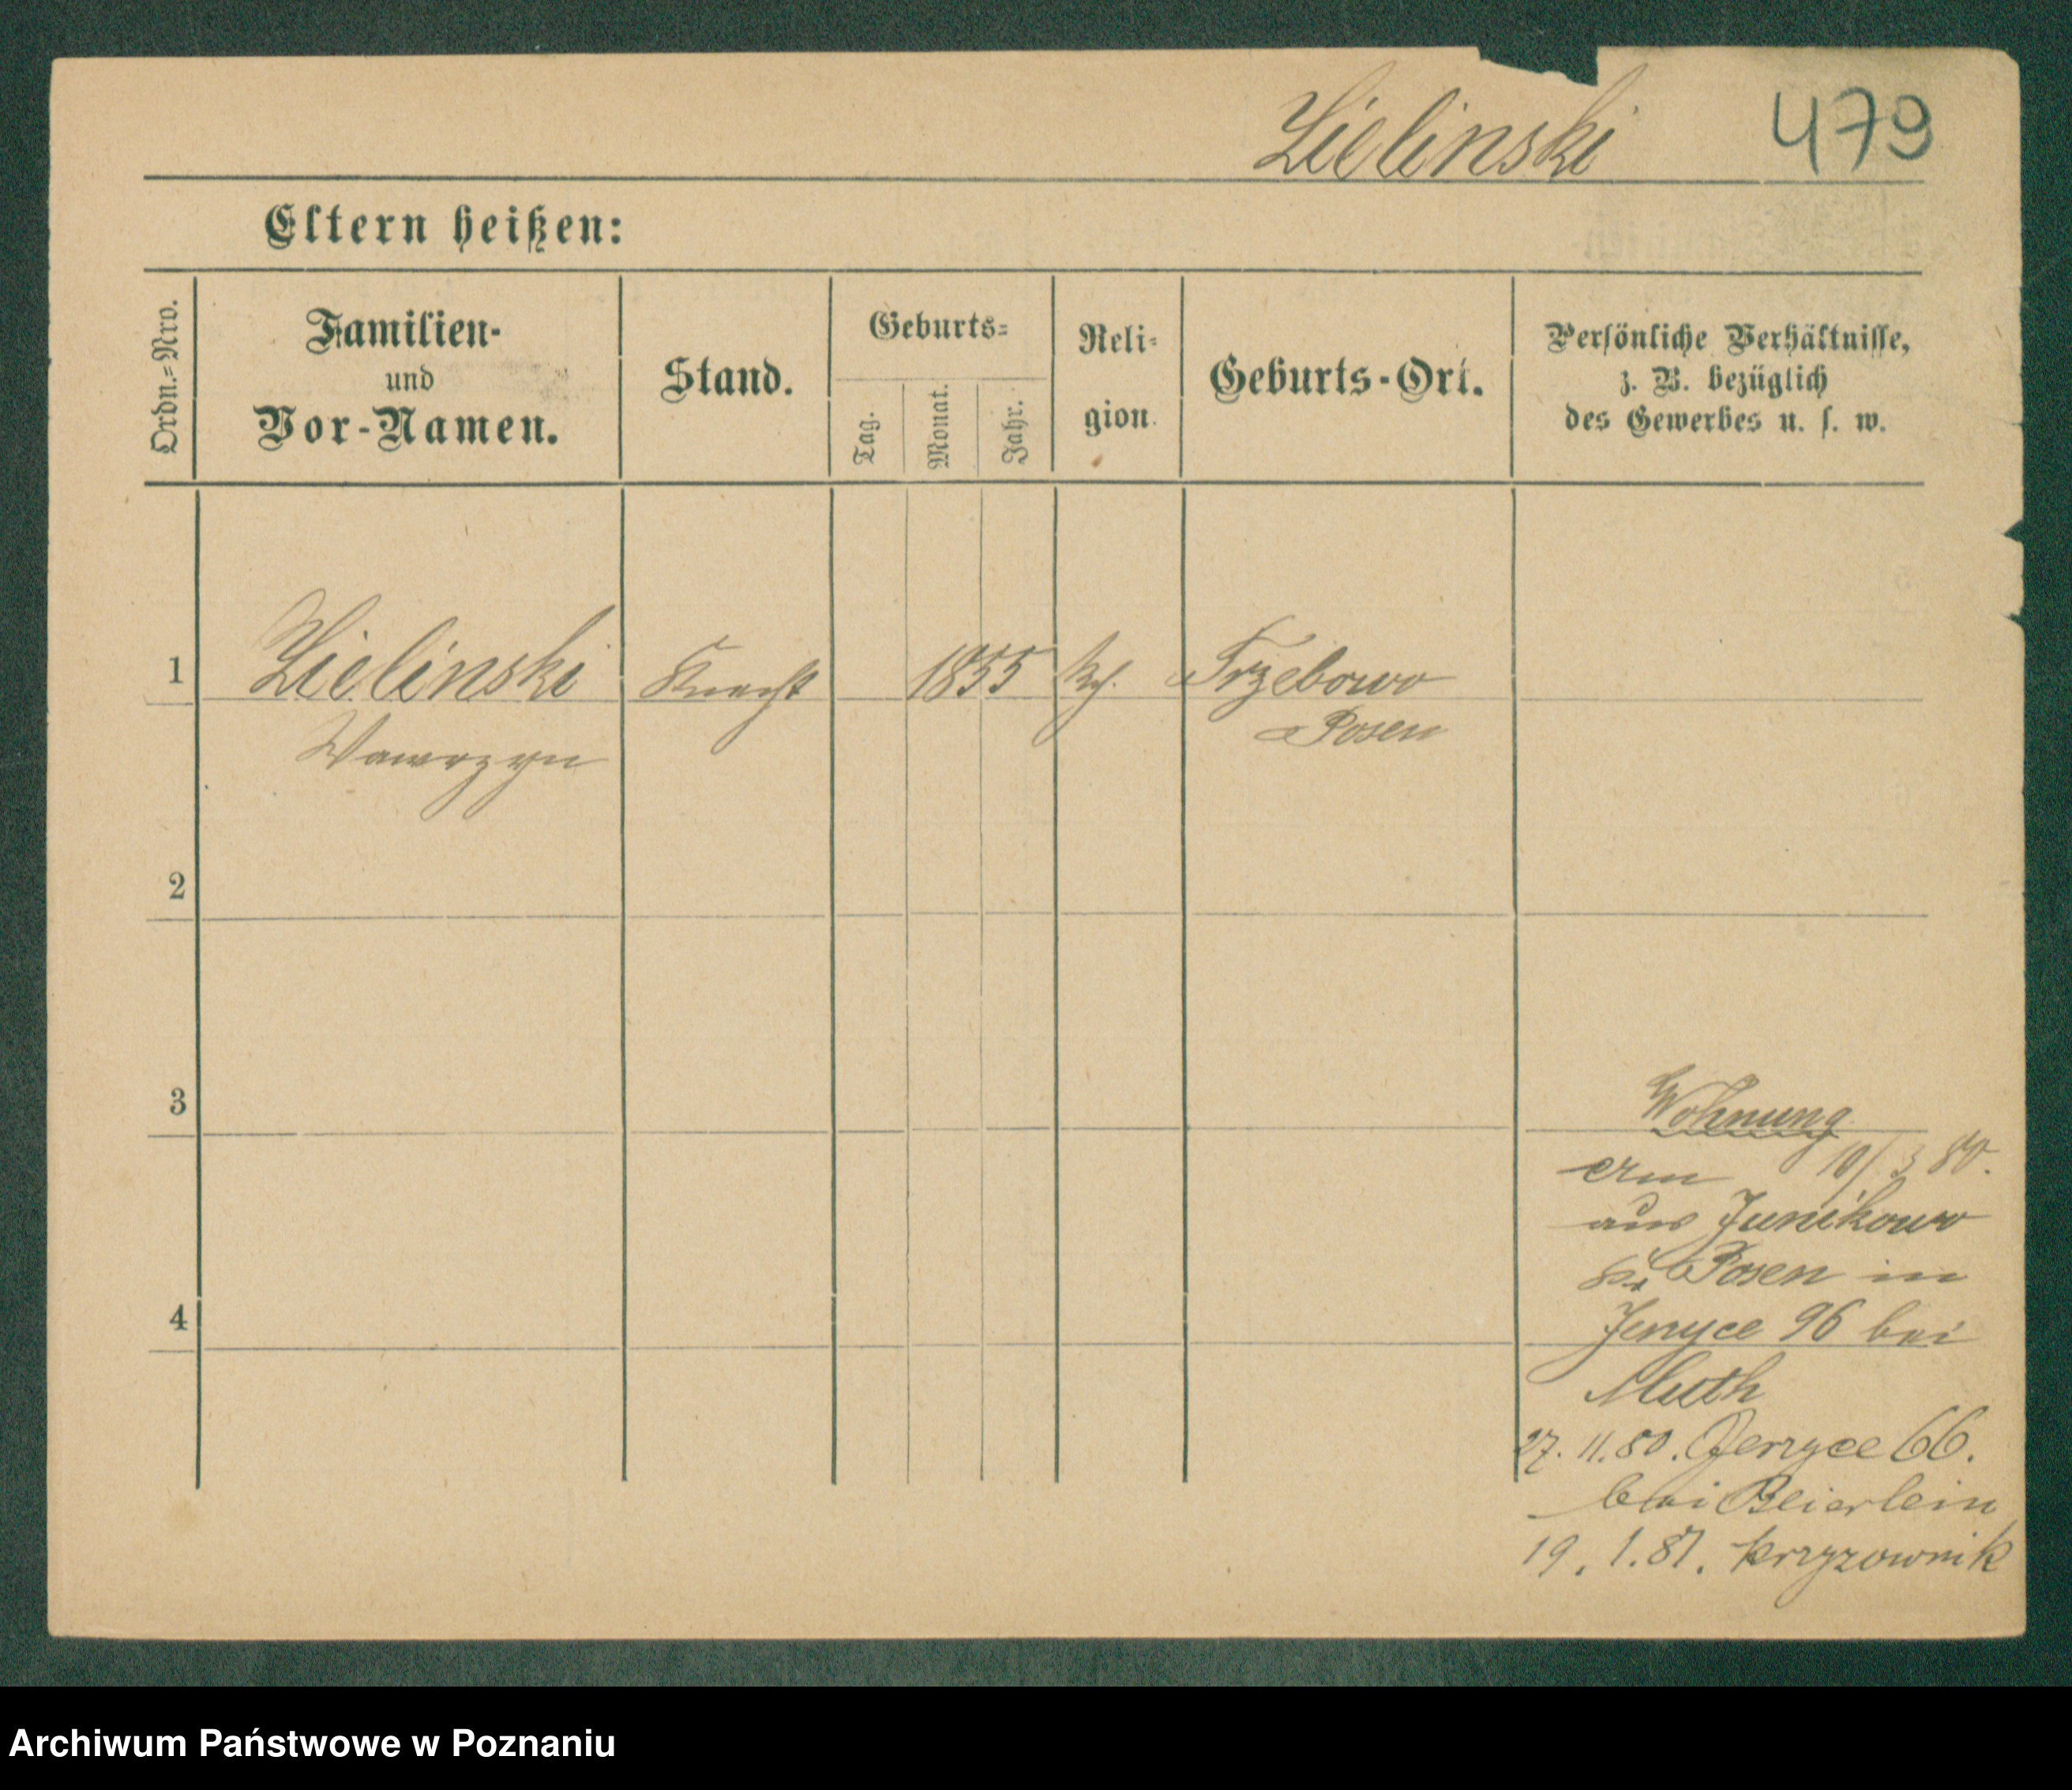 Zielinski 479
Eltern heißen:
Ordn.=Nro.
Familien-
und
Vor-Namen.
Stand.
Geburts=
Tag.
Monat.
Jahr.
Reli=
gion.
Geburts-Ort.
Persönliche Verhältnisse,
z. B. bezüglich
des Gewerbes u. s. w.
1 Zielinski Knecht 1855 Trzebowo
Wawrzyn Posen
2
3
Wohnung
10/3 80.
aus Junikowo
Kr. Posen in
4
Jerzyce 96 bei
Muth
27. 11. 80. Jerzyce 66.
bei Beierlein
19. 1. 81. Krzyzownik
Archiwum Państwowe w Poznaniu